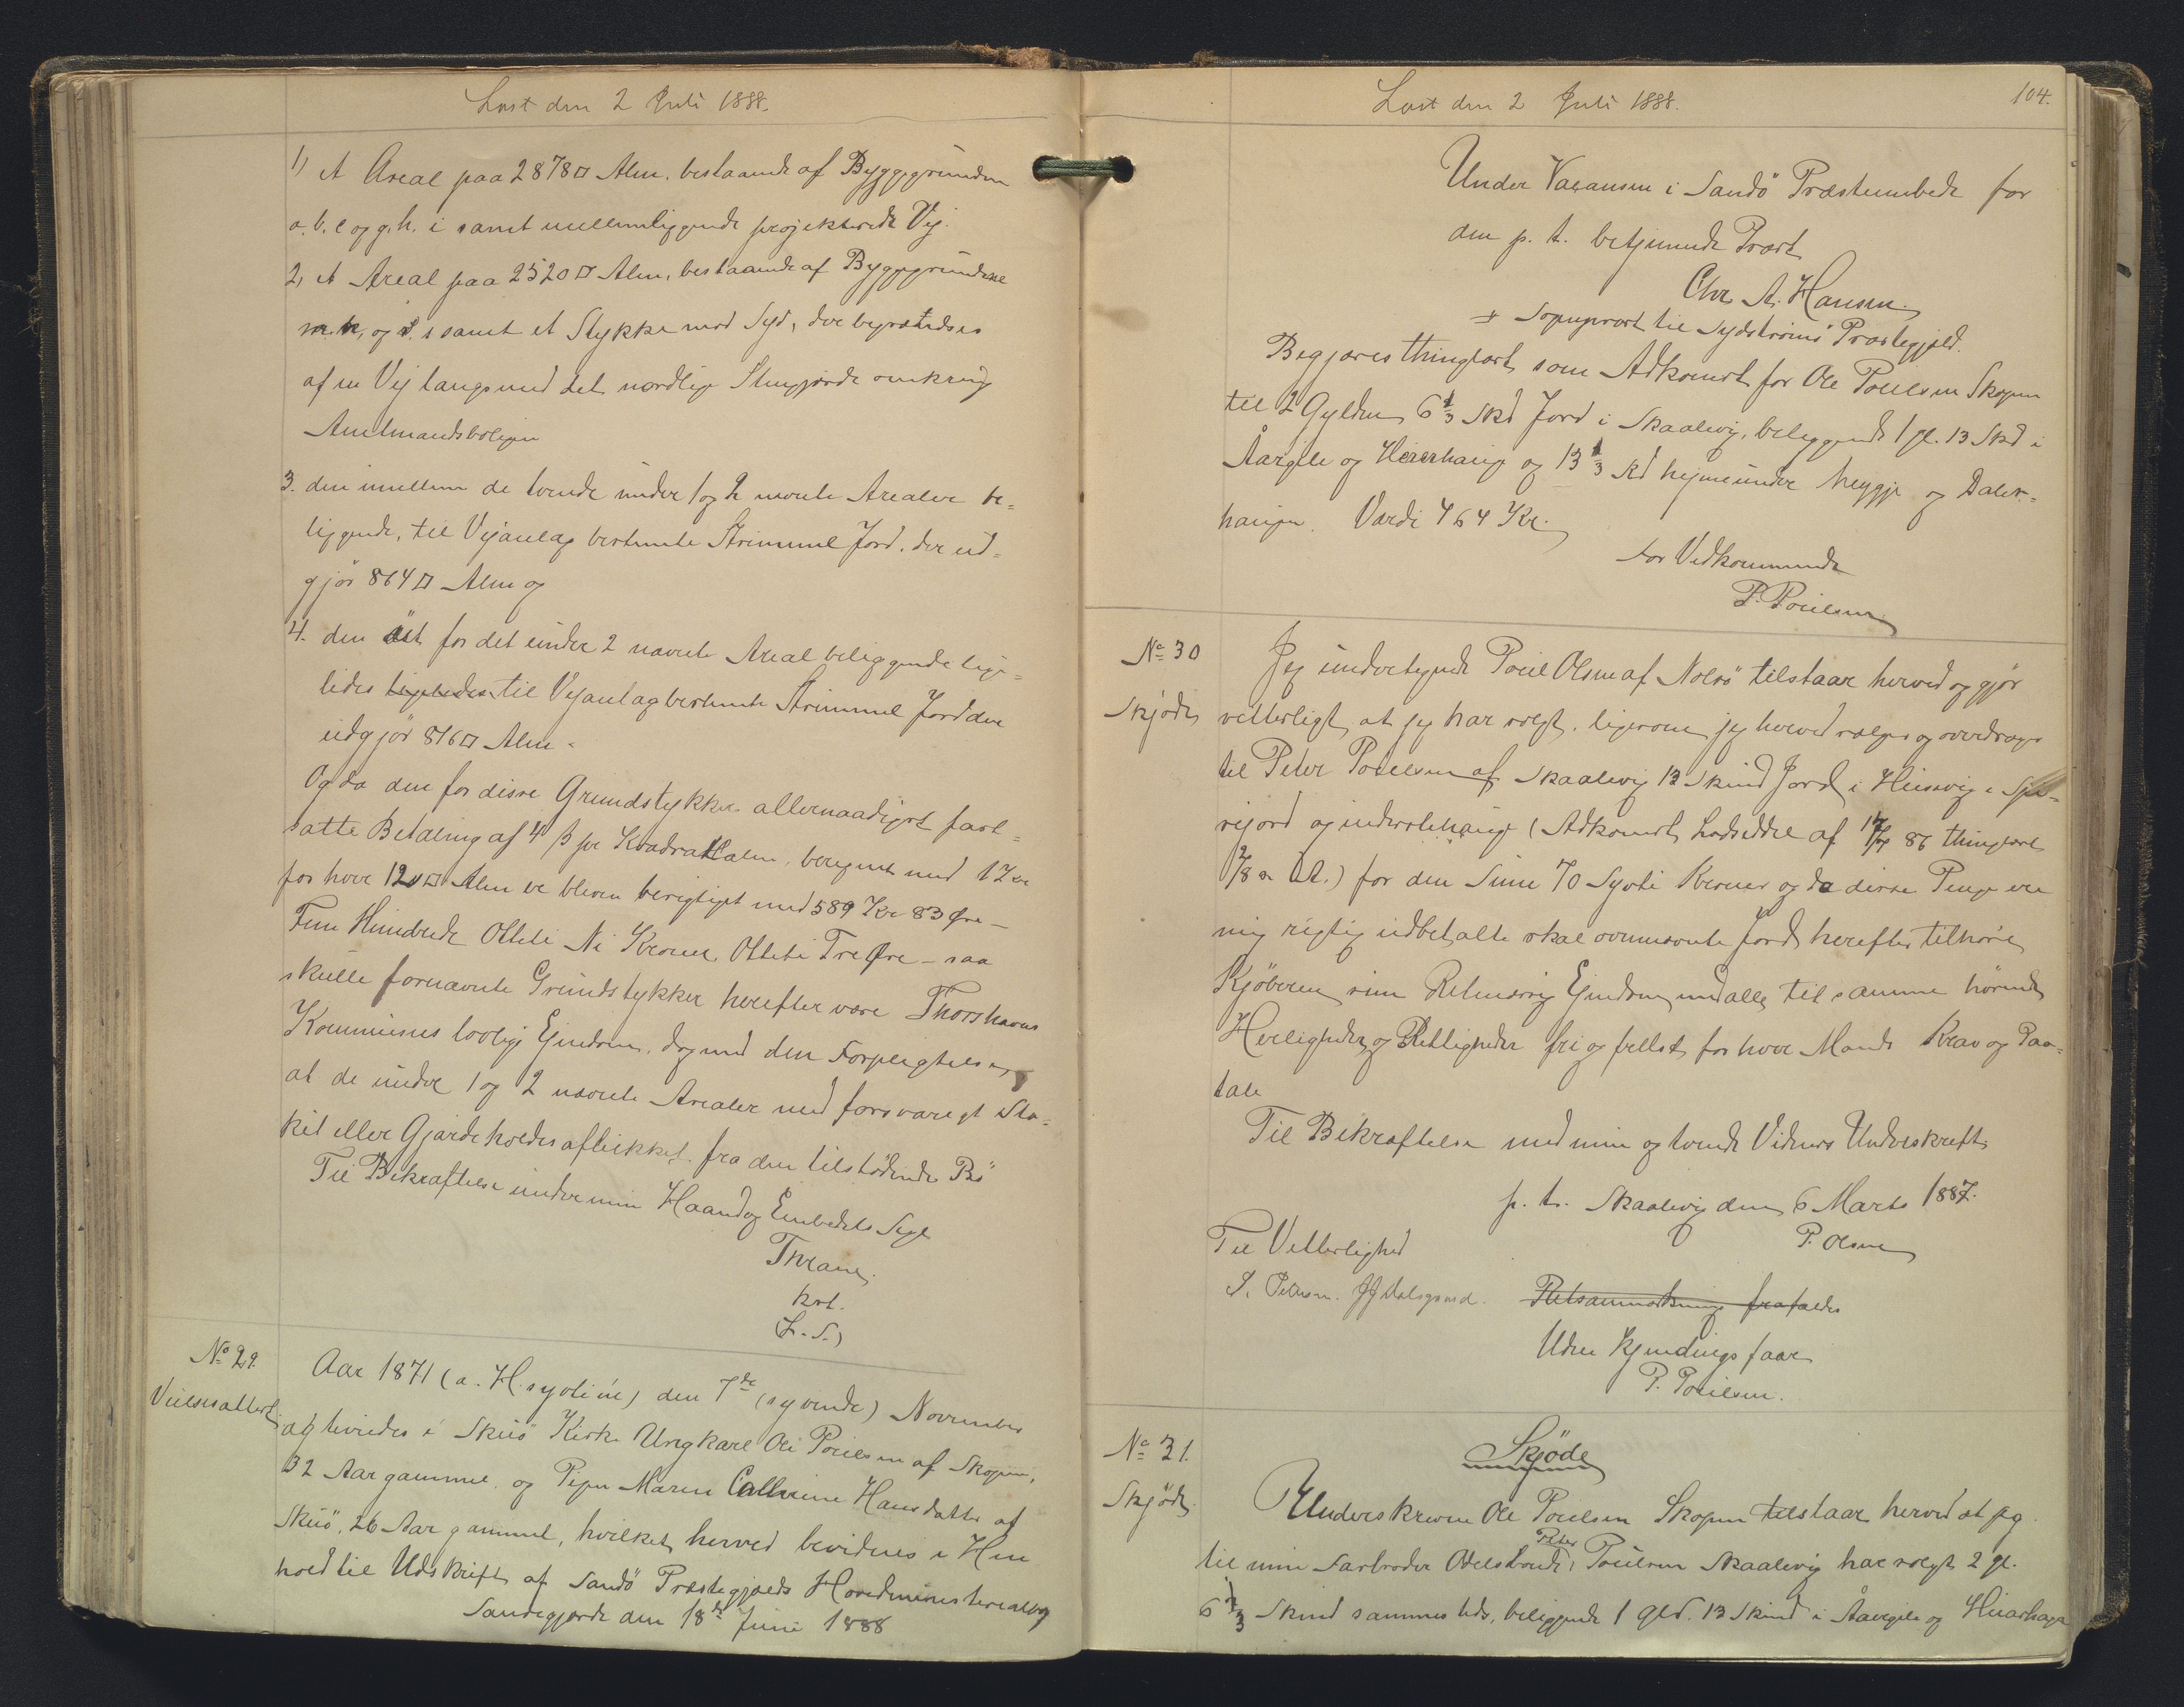 Læst den 2 Juli 1888.
1) et Areal paa 2878 □ Alen, bestaaende af Byggegrunden
a. b. e og g. h. i samt mellemliggende projekterede Vej.
2, et Areal paa 2520 □ Alen, bestaaende af Byggegrundene
og samt et Stykke mod Syd, der begrændses
af en Vej langs med det nordlige Stengjærde omkring
Amtmandsboligen
3. den imellem de tvende under 1 og 2 nævnte Arealer be=
liggende, til Vejanlæg bestemte Strimmel Jord, der ud=
gjør 864 □ Alen og
4. den øst for det under 2 nævnte Areal beliggende lige=
ledes ligeledes til Vejanlæg bestemte Strimmel Jord der
udgjør 816 □ Alen.
Og da den for disse Grundstykker allernaadigst fast=
satte Betaling af 4 β pr Kvadratalen, beregnet med 12
for hver 120 □ Alen er bleven berigtiget med 589 Kr 83 Øre –
Fem Hundrede Otteti Ni Kroner Otteti Tre Øre – saa
skulle fornævnte Grundstykker herefter være Thorshavns
Kommunes lovlige Ejendom, dog med den Forpligtelse,
at de under 1 og 2 nævnte Arealer med forsvarligt Sta=
kit eller Gjærde holdes aflukket fra den tilstødende Bø
Til Bekræftelse under min Haand og Embedets Segl
Thrane
kst.
(L. S.)
No 29.
Vielsesattest
Aar 1871 (a. H. syvti én) den 7de (syvende) November
ægteviedes i Skuø Kirke Ungkarl Ole Poulsen af Skopen,
32 Aar gammel, og Pigen Maren Cathrine Hansdatter af
Skuø, 26 Aar gammel, hvilket herved bevidnes i Hen
hold til Udskrift af Sandø Præstegjælds Hovedministerialbog
Sandegjerde den 18de Juni 1888
Læst den 2 Juli 1888.
104.
Under Vacansen i Sandø Præsteembede for
den p. t. betjenende Præst
Chr. A. Hansen
Sognepræst til Sydstrømø Præstegjæld.
Begjæres thinglæst som Adkomst for Ole Poulsen Skopen
til 2 Gylden 6 1/3 Skd Jord i Skaalevig, beliggende 1 gl. 13 Skd i
Aargile og og 13 1/3 Skd hejme under Neyggje og Daler=
haugen. Værdi 464 Kr.
For Vedkommende
P. Poulsen
No 30
Skjøde
Jeg undertegnede Poul Olsen af Nolsø tilstaar herved og gjør
vitterligt, at jeg har solgt, ligesom jeg herved sælger og overdrager
til Peter Poulsen af Skaalevig 13 Skind Jord i Husevig
rejord og (Adkomst Lodseddel af 86 thinglæst
) for den Sum 70 Syvti Kroner og da disse Penge ere
mig rigtig udbetalte skal ovennævnte Jord herefter tilhøre
Kjøberen som Retmæssig Ejendom med alle til samme hørende
Herligheder og Rettigheder fri og frelst for hver Mands Krav og Paa=
tale
Til Bekræftelse med min og tvende Vidners Underskrift
p. t. Skaalevig den 6 Marts 1887.
Til Vitterlighed
P. Olsen
J J Dalsgaard.
Retsanmærkning frafaldes
Uden Kjendings faar
P. Poulsen.
No 31.
Skjøde
Skjøde
Underskrevne Ole Poulsen Skopen tilstaar herved at jeg
til min Farbroder Odelsbonde Peter Poulsen Skaalevig har solgt 2 gl.
6 1/3 Skind sammesteds, beliggende 1 gld. 13 Skind i Aargile og